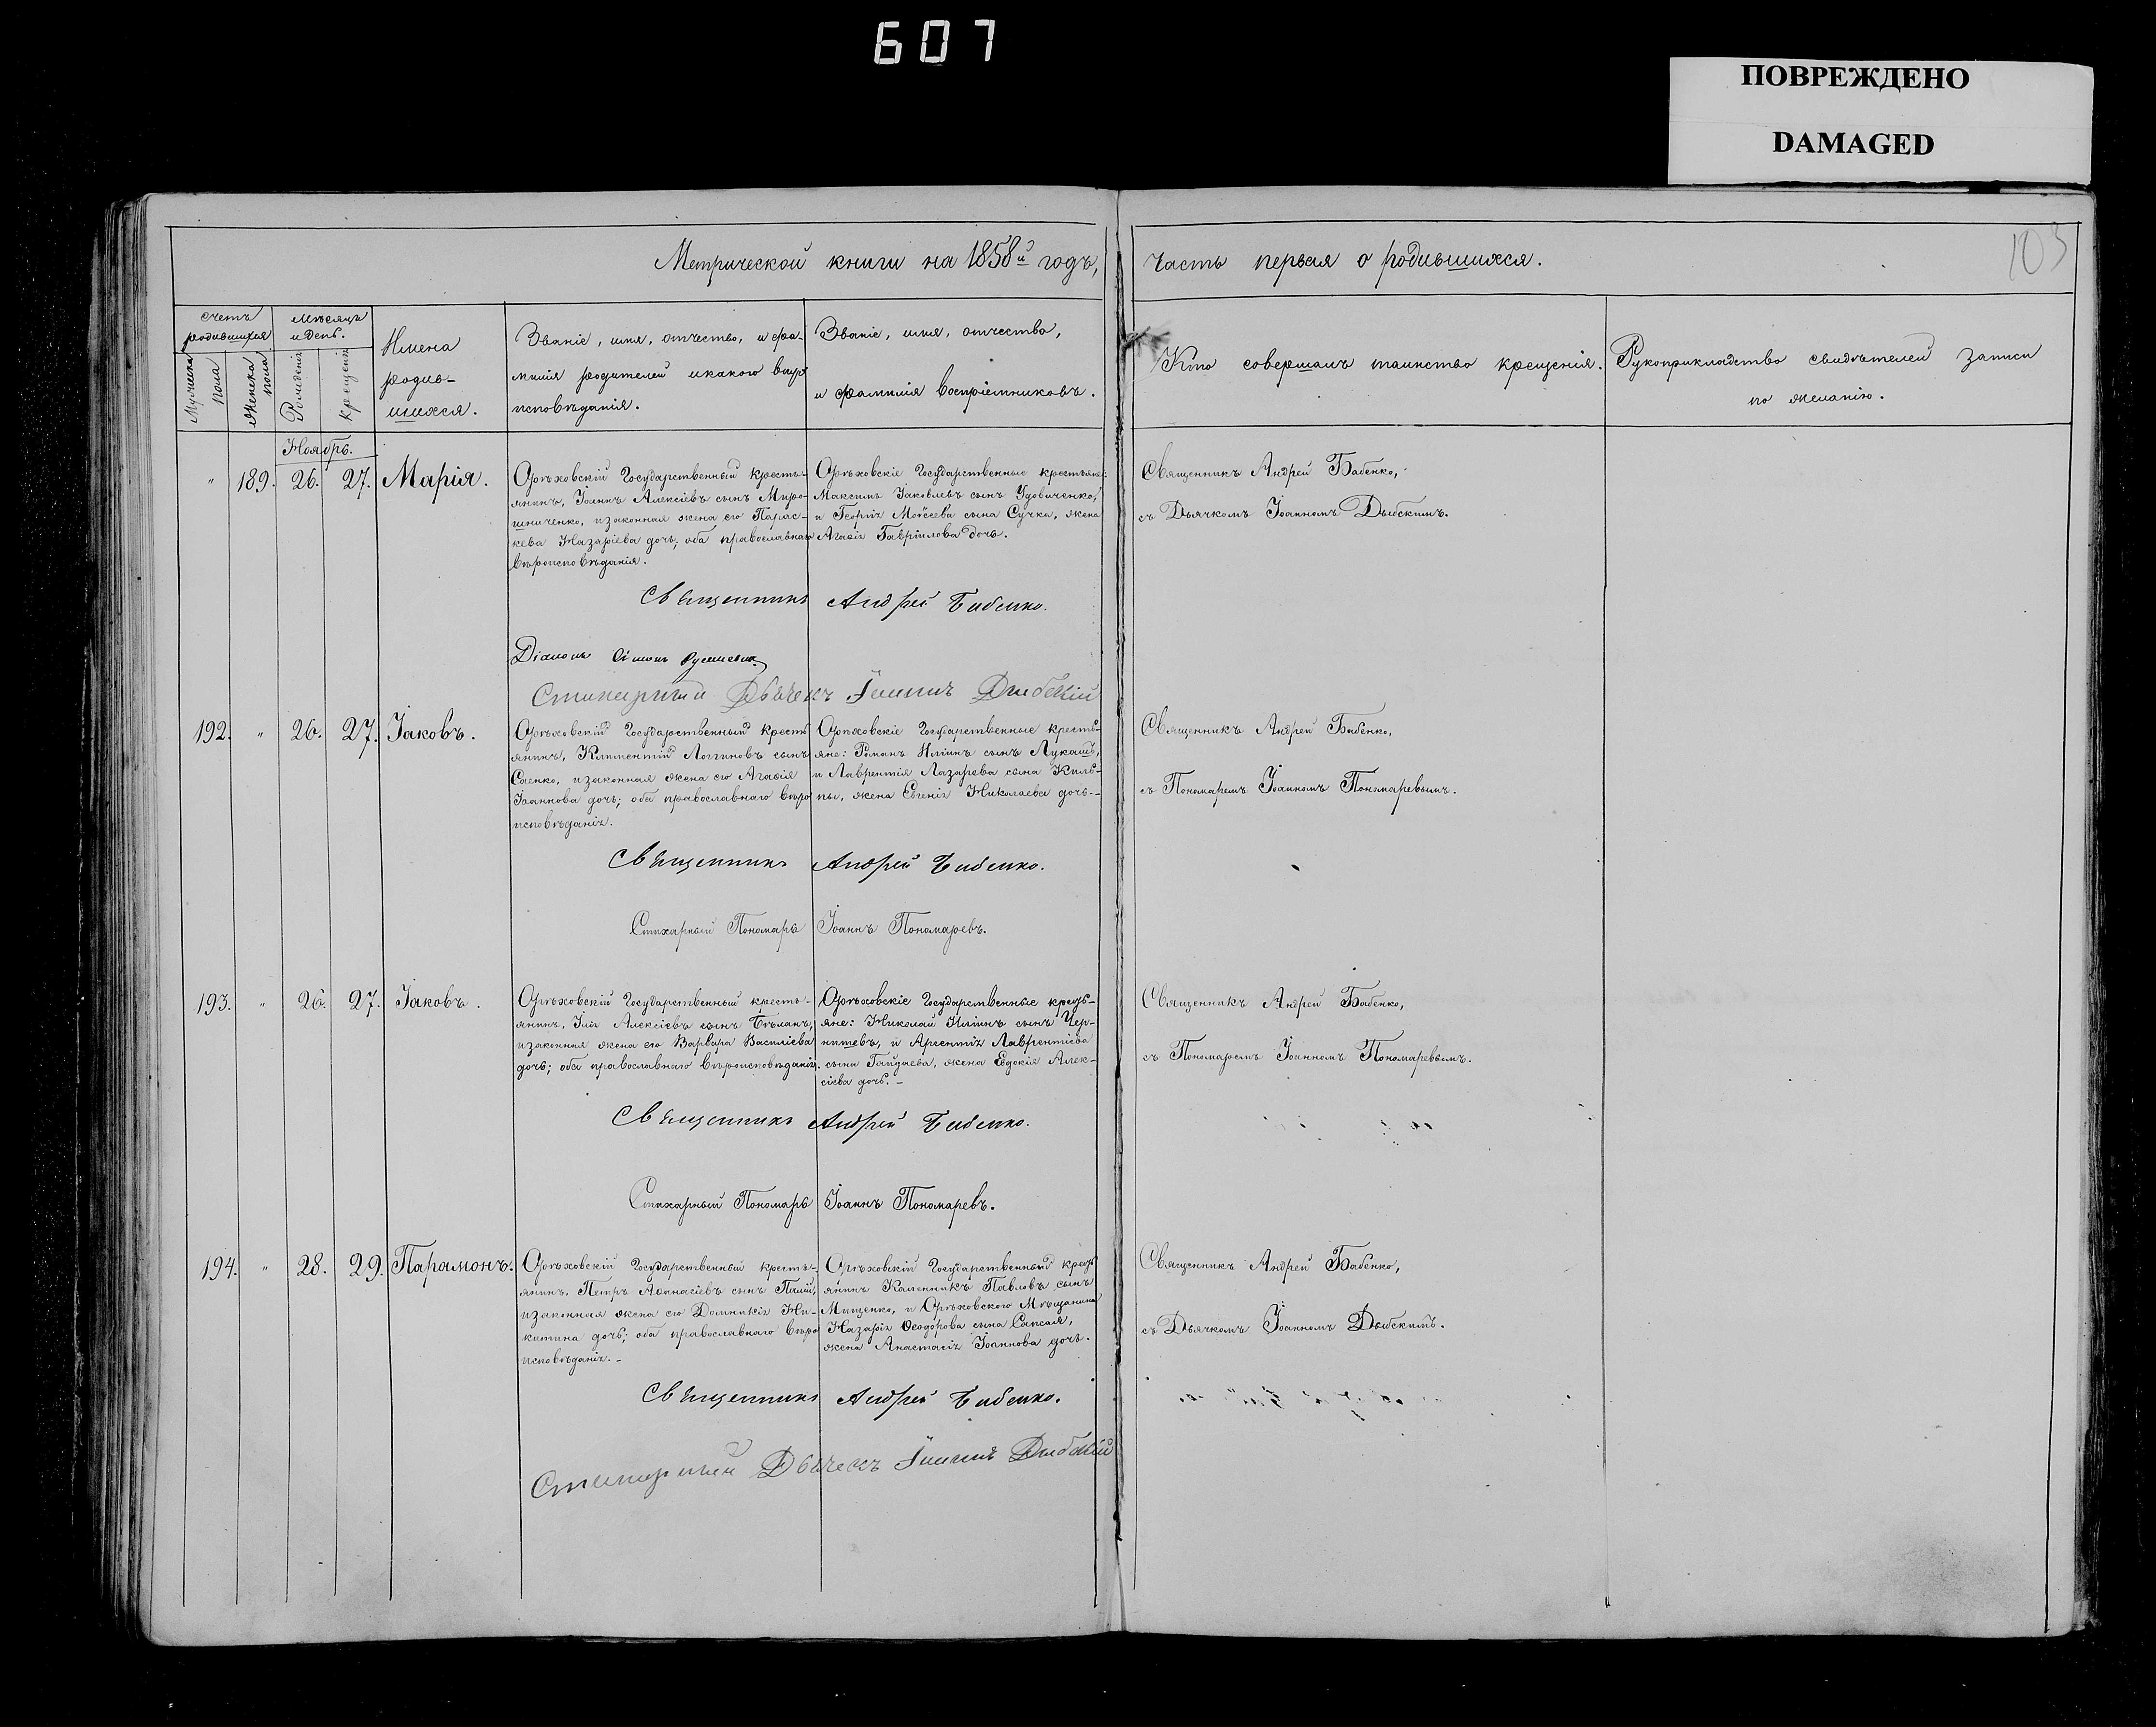 607
ПОВРЕЖДЕНО
DAMAGED
103
Метрической книги на 1858й годъ,
Часть первая о родившихся.
Счетъ родившихся
Мужеска пола
Женска пола
Мѣсяцъ и день.
Рожденія
Крещенія
Имена родив-
шихся.
Званіе, имя, отчество, и фа-
милія родителей и какого вѣро
исповѣданія.
Званіе, имя, отчество,
и фамилія воспріемниковъ.
Кто совершалъ таинство крещенія.
Рукоприкладство свидѣтелей записи
по желанію.
Ноябрь.
" 189. 26. 27. Марія.
Орѣховскій Государственный кресть-
янинъ, Іоаннъ Алексіевъ сынъ Миро-
шниченко, и законная жена его Парас-
кева Назаріева дочь; оба православнаго
вѣроисповѣданія.
Орѣховскіе Государственные крестьяне:
Максимъ Іаковлевъ сынъ Удовиченко,
и Георгія Моѵсеева сына Сучка, жена
Агаѳія Гавріилова дочь.
Священникъ Андрей Бабенко,
съ Дьячкомъ Іоанномъ Дыбскимъ.
Священникъ Андрей Бабенко.
Діаконъ Симонъ
Стихарный Дьячекъ Іоаннъ Дыбскій
192. " 26. 27. Іаковъ.
Орѣховскій Государственный кресть
янинъ, Климентій Логгиновъ сынъ
Саенко, и законная жена его Агаѳія
Іоаннова дочь; оба православнаго вѣро
исповѣданія.
Орѣховскіе Государственные кресть-
яне: Романъ Иліинъ сынъ Лукашъ,
и Лаврентія Лазарева сына Кили-
пы, жена Евгенія Николаева дочь.-
Священникъ Андрей Бабенко,
съ Пономаремъ Іоанномъ Пономаревымъ.
Священникъ Андрей Бабенко.
Стихарный Пономарь Іоаннъ Пономаревъ.
193. " 26. 27. Іаковъ.
Орѣховскій Государственный кресть-
янинъ, Илія Алексіевъ сынъ Бѣланъ,
и законная жена его Варвара Василіева
дочь; оба православнаго вѣроисповѣданія.
Орѣховскіе Государственные кресть-
яне: Николай Иліинъ сынъ Чер-
нышевъ, и Арсентія Лаврентіева
сына Гайдаева, жена Евдокія Алек-
сіева дочь.-
Священникъ Андрей Бабенко,
съ Пономаремъ Іоанномъ Пономаревымъ.
Священникъ Андрей Бабенко.
Стихарный Пономарь Іоаннъ Пономаревъ.
194. " 28. 29. Парамонъ.
Орѣховскій Государственный кресть-
янинъ, Петръ Аѳанасіевъ сынъ Палій,
и законная жена его Домникія Ни-
китина дочь; оба православнаго вѣро
исповѣданія.-
Орѣховскій Государственный кресть
янинъ Каленникъ Павловъ сынъ
Мищенко, и Орѣховскаго Мѣщанина
Назарія Ѳеодорова сына Сапсая,
жена Анастасія Іоаннова дочь.
Священникъ Андрей Бабенко,
съ Дьячкомъ Іоанномъ Дыбскимъ.
Священникъ Андрей Бабенко.
Стихарный Дьячекъ Іоаннъ Дыбскій